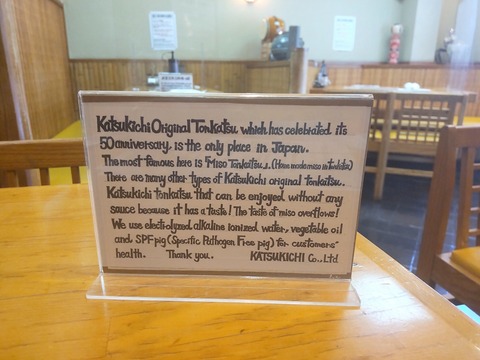 Katsukichi Original Tonkatsu which has celebrated its
50 anniversary, is the only place in Japan.
The most famous here is Miso Tonkatsu. (Home made miso in twelster)
There are many other types of Katsukichi original tonkatsu.
Katsukichi tonkatsu that can be enjoyed without any
sauce because it has a taste! The taste of miso overflows!
We use electrolyzed alkaline ionized water, vegetable oil
and SPF pig (Specific Pathogen Free pig) for customers'
health. Thank you. KATSUKICHI Co., Ltd